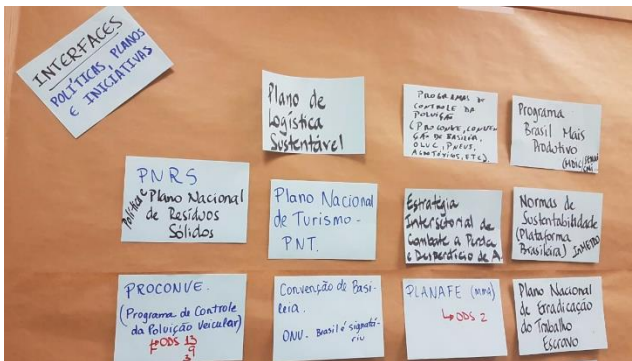 INTERFACES
POLÍTICAS, PLANOS
E INICIATIVAS
Plano de
Logística
Sustentável
PROGRAMAS DE
CONTROLE DA
POLUIÇÃO
(PROCONVE, CONVEN
ÇÃO DE BASILEIA,
OLUC, PNEUS,
AGROTÓXICOS, ETC)
Programa
Brasil Mais
Produtivo
(MDIC)
Política e
PNRS
Plano Nacional
de Resíduos
Sólidos
Plano Nacional
de Turismo -
PNT.
Estratégia
Intersetorial de
Combate a Perda
e Desperdício de A.
Normas de
Sustentabilidade
(Plataforma
Brasileira) INMETRO
PROCONVE.
(Programa de Controle
da Poluição Veicular)
↳ ODS 13
9
3
Convenção de Basi-
leia.
ONU - Brasil é signatá-
rio
PLANAFE (mma)
↳ ODS 2
Plano Nacional
de Erradicação
do Trabalho
Escravo